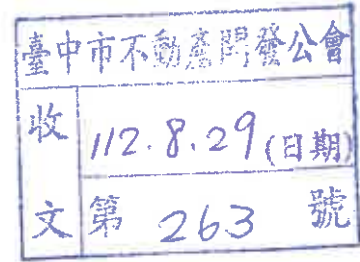 臺中市不動產開發公會
收文
112.8.29(日期)
第 263 號